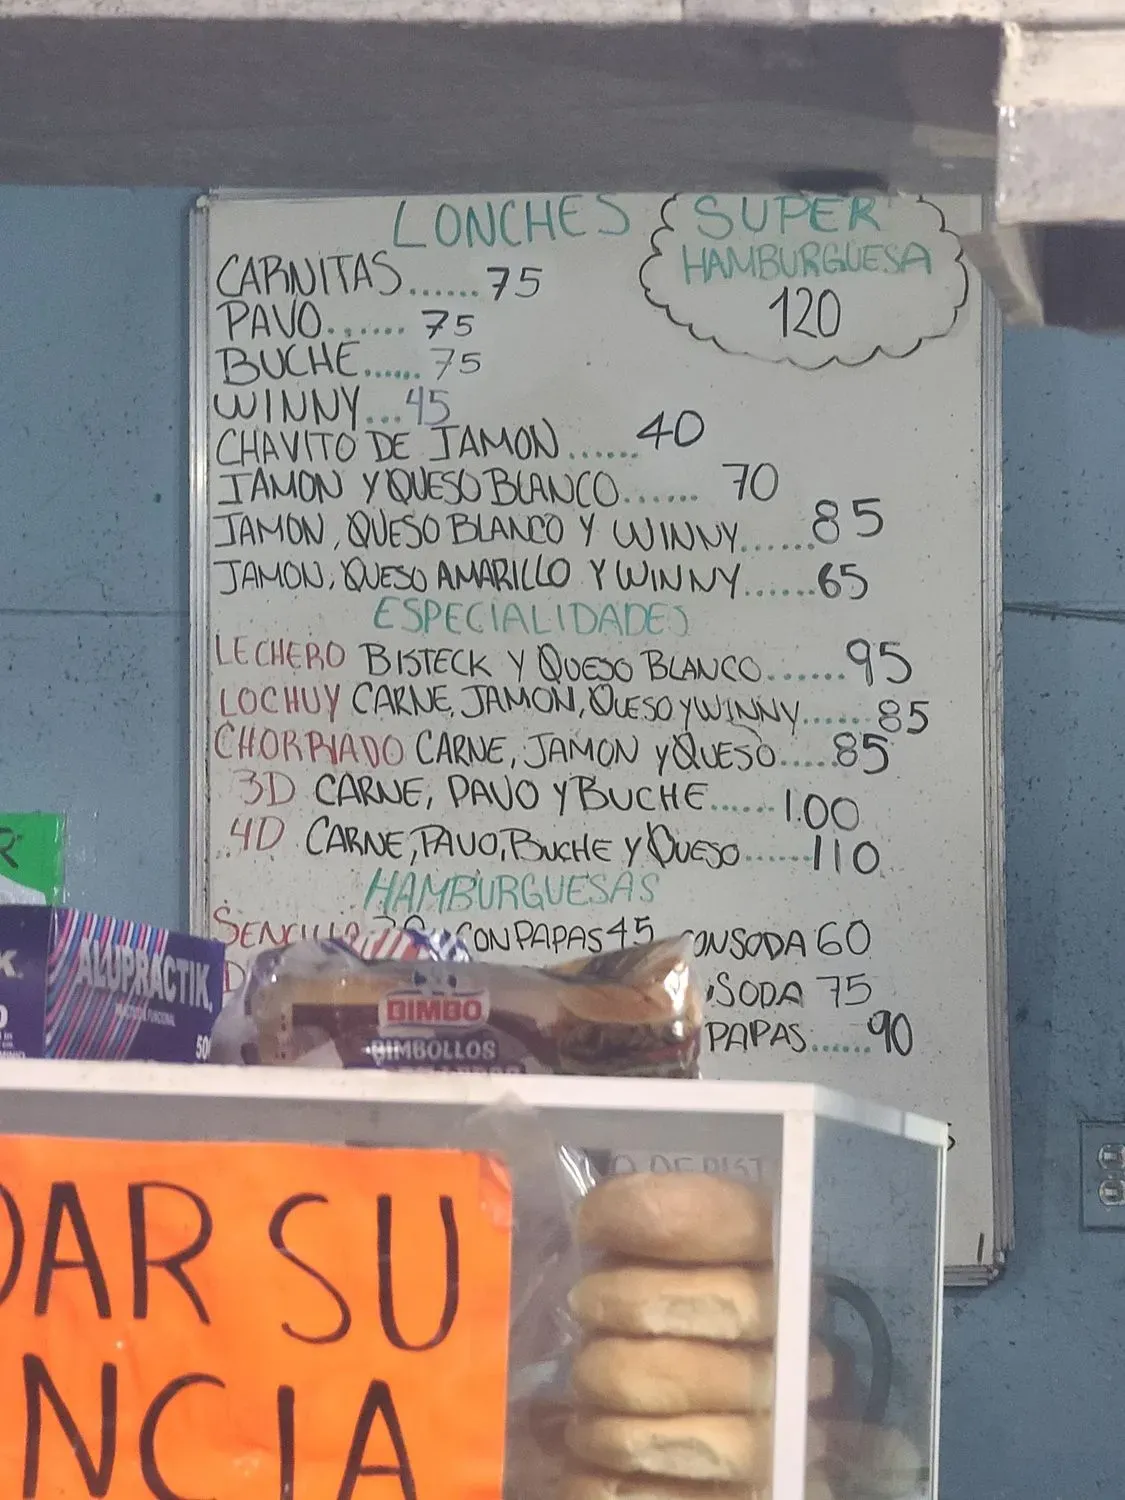 LONCHES
SUPER
HAMBURGUESA
120
CARNITAS.......75
PAVO....... 75
BUCHE...... 75
WINNY...45
CHAVITO DE JAMON....... 40
JAMON Y QUESO BLANCO....... 70
JAMON, QUESO BLANCO Y WINNY.......85
JAMON, QUESO AMARILLO Y WINNY.......65
ESPECIALIDADES
LECHERO BISTECK Y QUESO BLANCO.......95
LOCHUY CARNE, JAMON, QUESO Y WINNY.......85
CHORRIADO CARNE, JAMON Y QUESO.....85
3D CARNE, PAVO Y BUCHE...... 100
4D CARNE, PAVO, BUCHE Y QUESO.......110
HAMBURGUESAS
SENCILLA CON PAPAS 45 CON SODA 60
SODA 75
PAPAS......90
ALUPRACTIK
BIMBO
BIMBOLLOS
DAR SU
NCIA